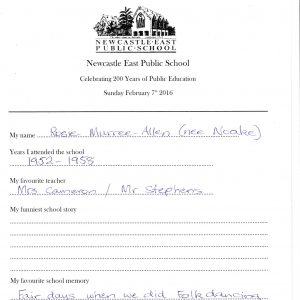 NEWCASTLE·EAST
PUBLIC·SCHOOL
Newcastle East Public School
Celebrating 200 Years of Public Education
Sunday February 7th 2016
My name Rosie Murree-Allen (nee Noake)
Years I attended the school
1952 - 1958
My favourite teacher
Mrs Cameron / Mr Stephens
My funniest school story
My favourite school memory
Fair days when we did folkdancing